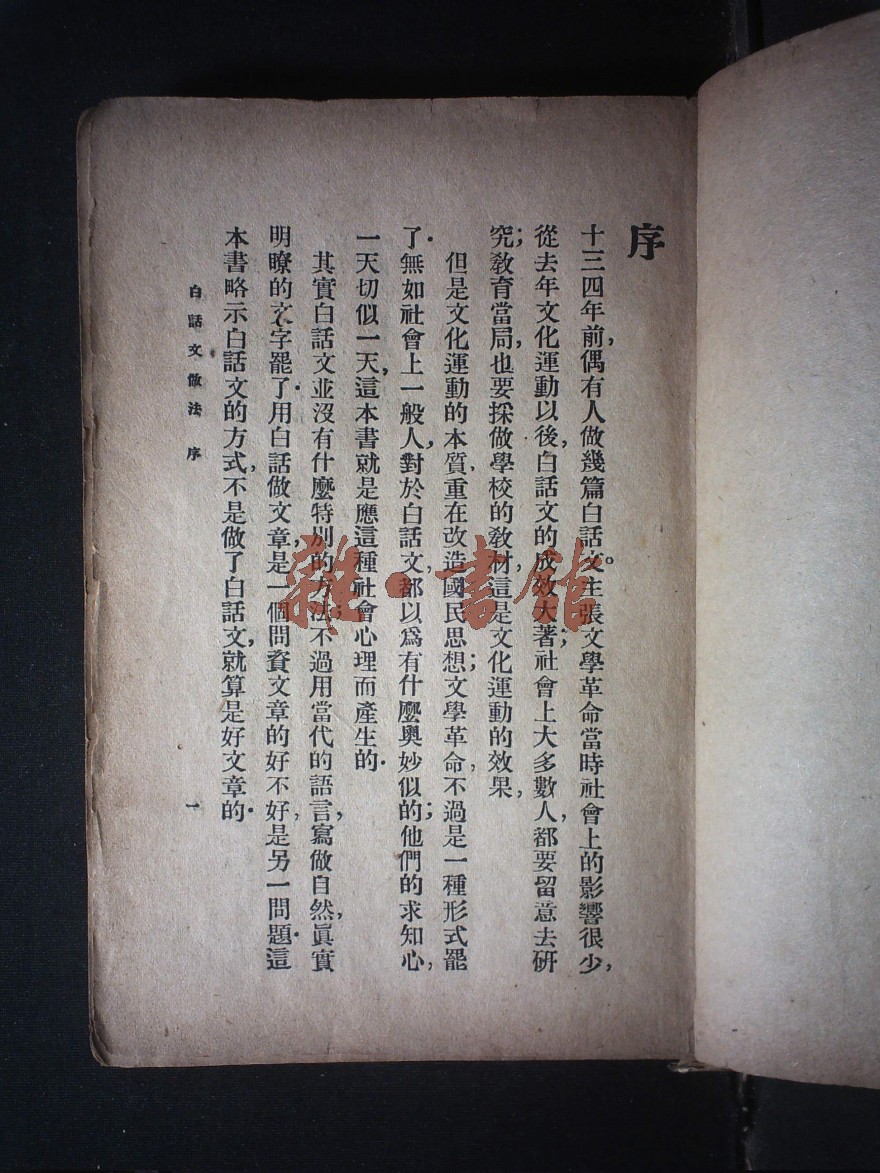 序
十三四年前，偶有人做幾篇白話文。主張文學革命當時社會上的影響很少，
從去年文化運動以後，白話文的成效大著；社會上大多數人，都要留意去硏
究；敎育當局，也要採做學校的敎材，這是文化運動的效果，
但是文化運動的本質，重在改造國民思想；文學革命，不過是一種形式罷
了．無如社會上一般人，對於白話文，都以爲有什麼奧妙似的；他們的求知心，
一天切似一天，這本書就是應這種社會心理而產生的．
其實白話文並沒有什麼特別的方法；不過用當代的語言，寫做自然，眞實
明瞭的文字罷了．用白話做文章，是一個問題文章的好不好，是另一問題．這
本書略示白話文的方式，不是做了白話文，就算是好文章的．
白話文做法 序
一
雜·書館